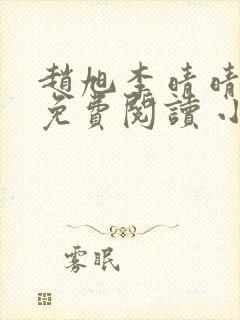 趙旭李晴晴
免費閱讀小
雾眠